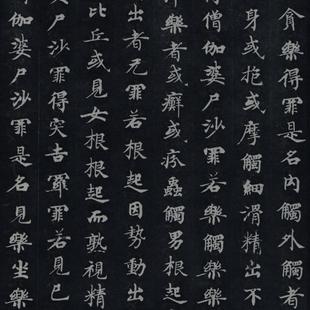 貪樂得罪是名內觸外觸者
身或抱或摩觸細滑精出不
僧伽婆尸沙罪若樂觸樂
樂者或癬或疥蟲觸男根起
出者无罪若根起因勢動出
比丘或見女根根起而熟視精
尸沙罪得突吉羅罪若見已
伽婆尸沙罪是名見樂坐樂